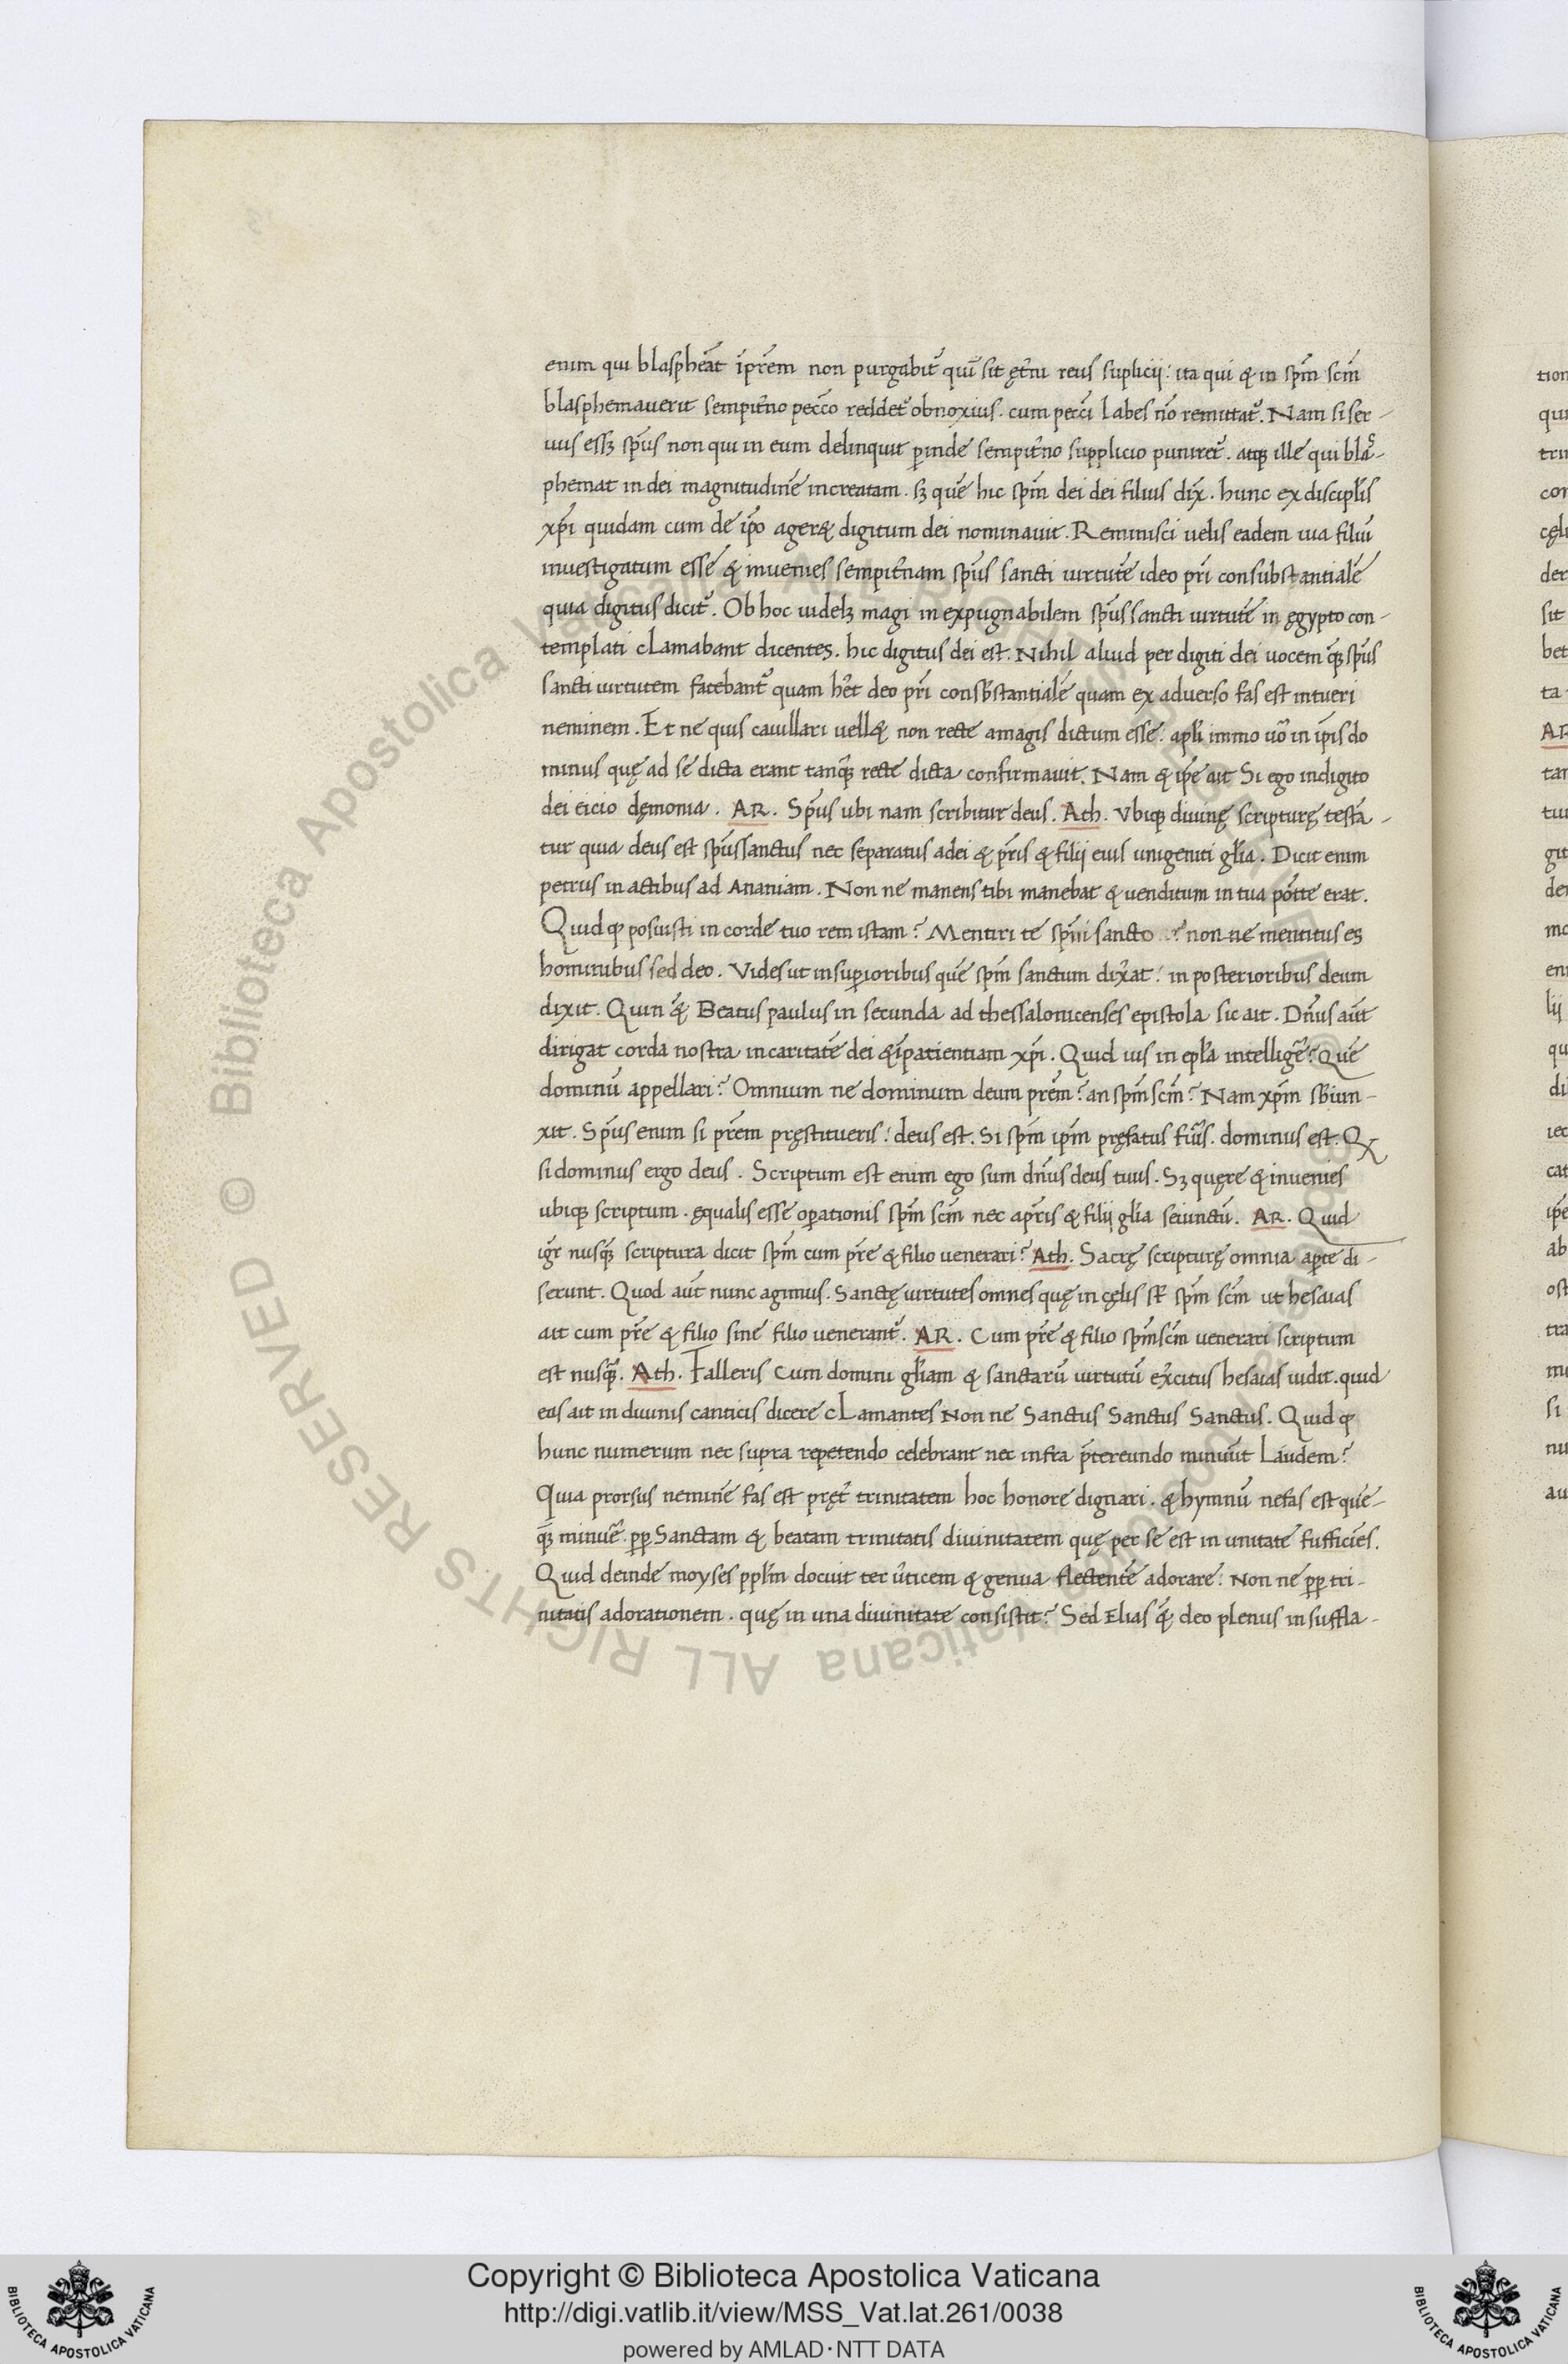 enim qui blaspheāt īpr̄em non purgabit᷑ quī sit ęt̄ni reus suplicij: ita qui & in sp̄m sc̄m
blasphemauerit sempit̄no pecc̄o reddet᷑ obnoxius. cum pecc̄i labes nō remittat᷑. Nam si ser-
uus essꝫ sp̄us non qui in eum delinquit ꝑinde sempit̄no supplicio puniret᷑. atqꝫ ille qui blas-
phemat in dei magnitudinē increatam. sꝫ quē hic sp̄m dei dei filius dix̄. hunc ex discipl̄is
xp̄i quidam cum de ip̄o ager& digitum dei nominauit. Reminisci uelis eadem uia filiū
inuestigatum esse & inuenies sempit̄nam sp̄us sancti uirtutē ideo pr̄i consubstantialē
quia digitus dicit᷑. Ob hoc uidelꝫ magi in expugnabilem sp̄us sancti uirtutē in ęgypto con-
templati clamabant dicentes. hic digitus dei est. Nihil aliud per digiti dei uocem qꝫ̄ sp̄us
sancti uirtutem fatebant᷑ quam h̄et deo pr̄i consb̄stantialē quam ex aduerso fas est intueri
neminem. Et ne quis cauillari uell& non recte amagis dictum esse: apl̄i immo uō in ip̄is do
minus quę ad se dicta erant tanqꝫ̄ recte dicta confirmauit. Nam & ip̄e ait Si ego indigito
dei eicio dęmonia. AR. Sp̄us ubi nam scribitur deus. Ath. Vbiqꝫ diuinę scripturę testā-
tur quia deus est sp̄ussanctus nec separatus adei & pr̄is & filij eius unigeniti gl̄ia. Dicit enim
petrus in actibus ad Ananiam. Non ne manens tibi manebat & uenditum in tua pōtte erat.
Quid ꝙ posuisti in corde tuo rem istam? Mentiri te sp̄ui sancto ? non ne mentitus es
hominibus sed deo. Vides ut in suꝑioribus quē sp̄m sanctum dix̄at: in posterioribus deum
dixit. Quin &̄ Beatus paulus in secunda ad thessalonicenses epistola sic ait. Dn̄us aūt
dirigat corda nostra in caritatē dei & īpatientiam xp̄i. Quid uis in epl̄a intelligē? Quē
dominū appellari? Omnium ne dominum deum prēm? an sp̄m sc̄m? Nam xp̄m sb̄iun-
xit. Sp̄us enim si pr̄em pręstitueris: deus est. Si sp̄m ip̄m pręfatus fūis. dominus est. Q̄
si dominus ergo deus. Scriptum est enim ego sum dn̄us deus tuus. Sꝫ quęre & inuenies
ubiqꝫ scriptum. ęqualis esse oꝑationis sp̄m sc̄m nec apr̄is & filij gl̄ia seiunctū. AR. Quid
igr̄ nusqꝫ̄ scriptura dicit sp̄m cum pr̄e & filio uenerari? Ath. Sacrę scripturę omnia aꝑte di-
serunt. Quod aūt nunc agimus. Sanctę uirtutes omnes quę in cęlis st̄ sp̄m sc̄m ut hesaias
ait cum pr̄e & filio sine filio uenerant᷑. AR. Cum pr̄e & filio sp̄m sc̄m uenerari scriptum
est nusqꝫ̄. Ath. Falleris Cum domini gl̄iam & sanctarū uirtutū ex̄citus hesaias uidit. quid
eas ait in diuinis canticis dicere clamantes Non ne Sanctus Sanctus Sanctus. Quid ꝙ
hunc numerum nec supra repetendo celebrant nec infra p̄tereundo minuūt Laudem?
Quia prorsus neminē fas est pręt̄ trinitatem hoc honore dignari. & hymnū nefas est quē-
qꝫ̄ minuē. ꝑp Sanctam & beatam trinitatis diuinitatem quę per se est in unitate sufficiēs.
Quid deinde moyses ppl̄m docuit ter ūticem & genua flectentē adorare: Non ne ꝑp tri-
nitatis adorationem. quę in una diuinitate consistit? Sed Elias &̄ deo plenus in suffla-
tion
Biblioteca Apostolica Vaticana ALL RIGHTS RESERVED ©
Copyright © Biblioteca Apostolica Vaticana
http://digi.vatlib.it/view/MSS_Vat.lat.261/0038
powered by AMLAD·NTT DATA
BIBLIOTECA APOSTOLICA VATICANA
BIBLIOTECA APOSTOLICA VATICANA